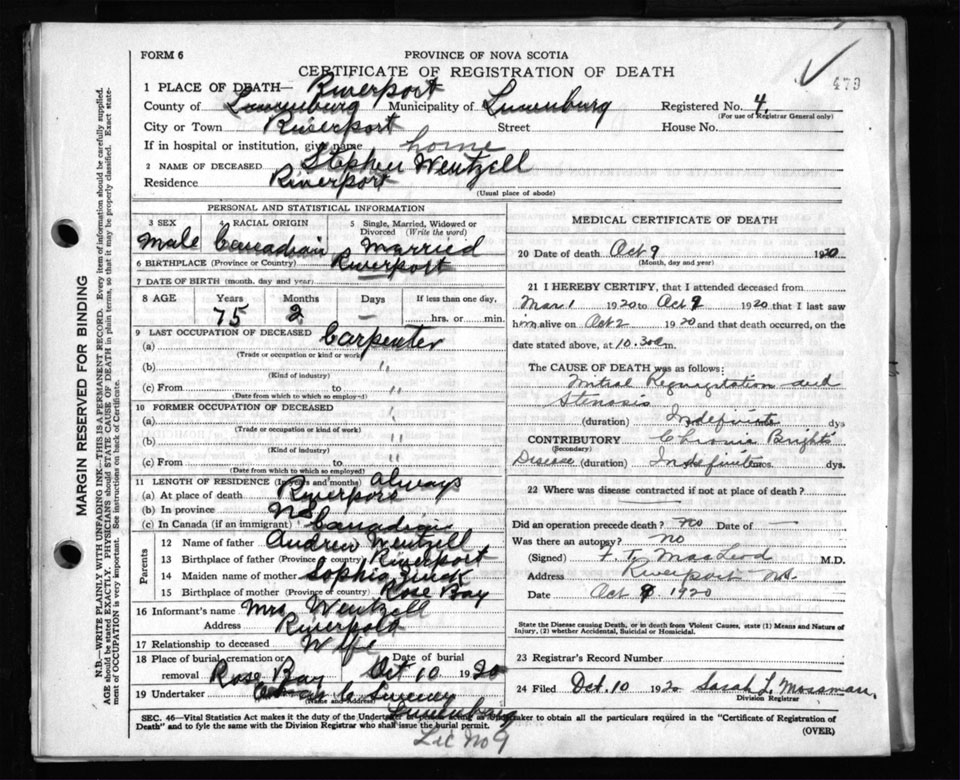 FORM 6
PROVINCE OF NOVA SCOTIA
CERTIFICATE OF REGISTRATION OF DEATH
479
1 PLACE OF DEATH— Riverport
County of Lunenburg Municipality of Lunenburg Registered No. 4.
(For use of Registrar General only)
City or Town Riverport Street House No.
If in hospital or institution, give name home
2 NAME OF DECEASED Stephen Wentzell
Residence Riverport
(Usual place of abode)
PERSONAL AND STATISTICAL INFORMATION
3 SEX 4 RACIAL ORIGIN 5 Single, Married, Widowed or Divorced (Write the word)
Male Canadian Married
6 BIRTHPLACE (Province or Country) Riverport
7 DATE OF BIRTH (month, day and year)
8 AGE Years Months Days If less than one day,
75 2 — hrs. or min.
9 LAST OCCUPATION OF DECEASED
(a) Carpenter
(Trade or occupation or kind of work)
(b) "
(Kind of industry)
(c) From to "
(Date from which to which so employed)
10 FORMER OCCUPATION OF DECEASED
(a) "
(Trade or occupation or kind of work)
(b) "
(Kind of industry)
(c) From to
(Date from which to which so employed)
11 LENGTH OF RESIDENCE (In years and months) always
(a) At place of death Riverport
(b) In province NS
(c) In Canada (if an immigrant) Canadian
Parents
12 Name of father Andrew Wentzell
13 Birthplace of father (Province or country) Riverport
14 Maiden name of mother Sophia
15 Birthplace of mother (Province or country) Rose Bay
16 Informant's name Mrs Wentzell
Address Riverport
17 Relationship to deceased Wife
18 Place of burial, cremation or removal Rose Bay Date of burial Oct 10 1920
19 Undertaker C.
(Name and Address)
Lunenburg
Lic No 9
MEDICAL CERTIFICATE OF DEATH
20 Date of death Oct 9 1920
(Month, day and year)
21 I HEREBY CERTIFY, that I attended deceased from
Mar 1 1920 to Oct 9 1920 that I last saw
him alive on Oct 2 1920 and that death occurred, on
the date stated above, at 10.30 a m.
The CAUSE OF DEATH was as follows:
Mitral Regurgitation and
Stenosis
(duration) Indefinite dys
CONTRIBUTORY Chronic Brights
(Secondary)
Disease (duration) Indefinite mos. dys.
22 Where was disease contracted if not at place of death?
Did an operation precede death? no Date of —
Was there an autopsy? no
(Signed) F. T. MacLeod M.D.
Address Riverport NS.
Date Oct 9 1920
State the Disease causing Death, or in death from Violent Causes, state (1) Means and Nature of
Injury, (2) whether Accidental, Suicidal or Homicidal.
23 Registrar's Record Number
24 Filed Oct. 10 1920 Sarah L. Mossman.
Division Registrar
SEC. 46—Vital Statistics Act makes it the duty of the Undertaker or person acting as Undertaker to obtain all the particulars required in the "Certificate of Registration of
Death" and to file the same with the Division Registrar who shall issue the burial permit.
(OVER)
MARGIN RESERVED FOR BINDING
N.B.—WRITE PLAINLY WITH UNFADING INK—THIS IS A PERMANENT RECORD. Every item of information should be carefully supplied.
AGE should be stated EXACTLY. PHYSICIANS should STATE CAUSE OF DEATH in plain terms, so that it may be properly classified. Exact state-
ment of OCCUPATION is very important. See instructions on back of Certificate.